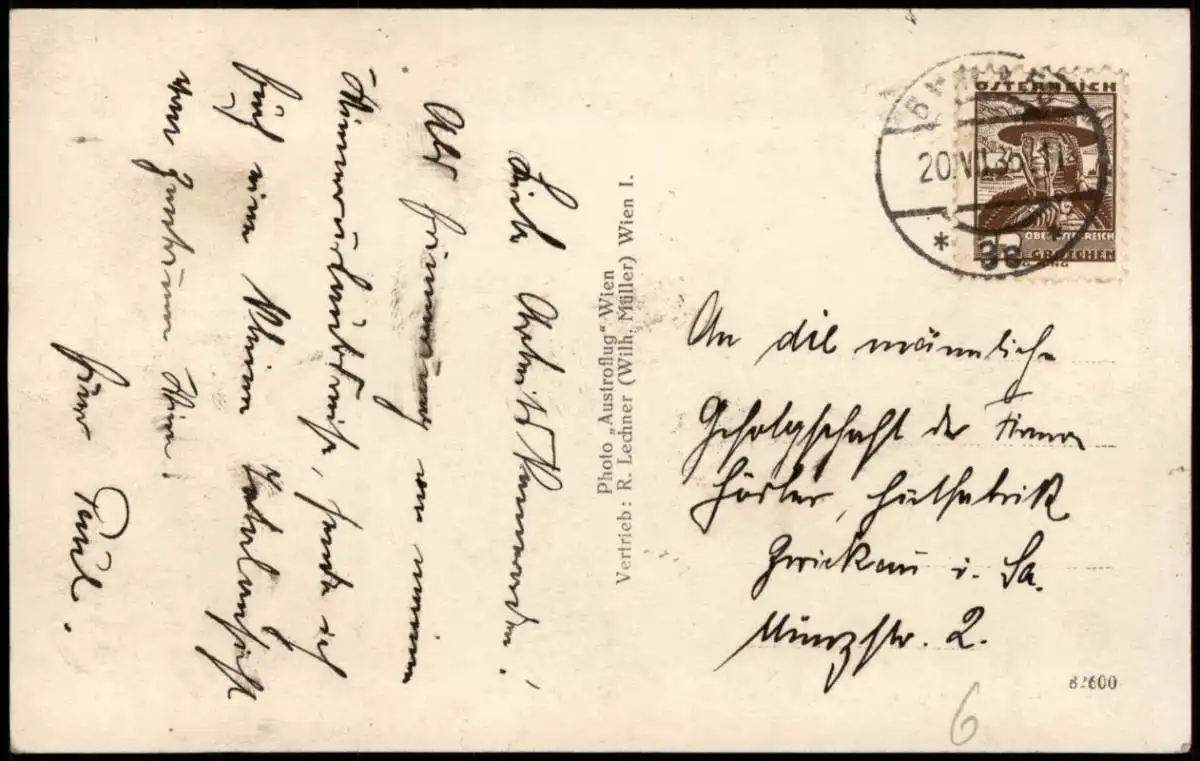 Liebe Arbeitskameraden!
Als Erinnerung von meinem
Sommerurlaubsreise, sende ich
Euch eine kleine Totalansicht
vom Zentrum Wien!
Euer Paul.
Photo „Austroflug" Wien
Vertrieb: R. Lechner (Wilh. Müller) Wien I.
ÖSTERREICH
OBERÖSTERREICH
GROSCHEN
20.VII.36
* 3e
An die männliche
Gefolgschaft der Firma
Hutfabrik
Zwickau i. Sa.
Münzstr. 2.
82600
6